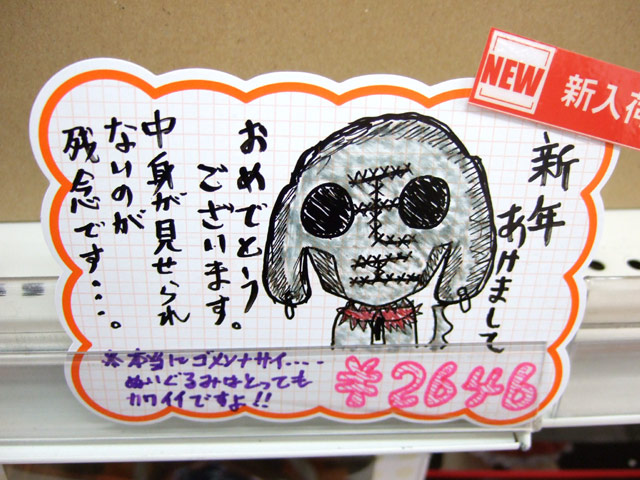 NEW 新入荷
新年
あけまして
おめでとう
ございます。
中身が見せられ
ないのが
残念です・・・。
※本当にゴメンナサイ....
ぬいぐるみはとっても
カワイイですよ!!
¥2646